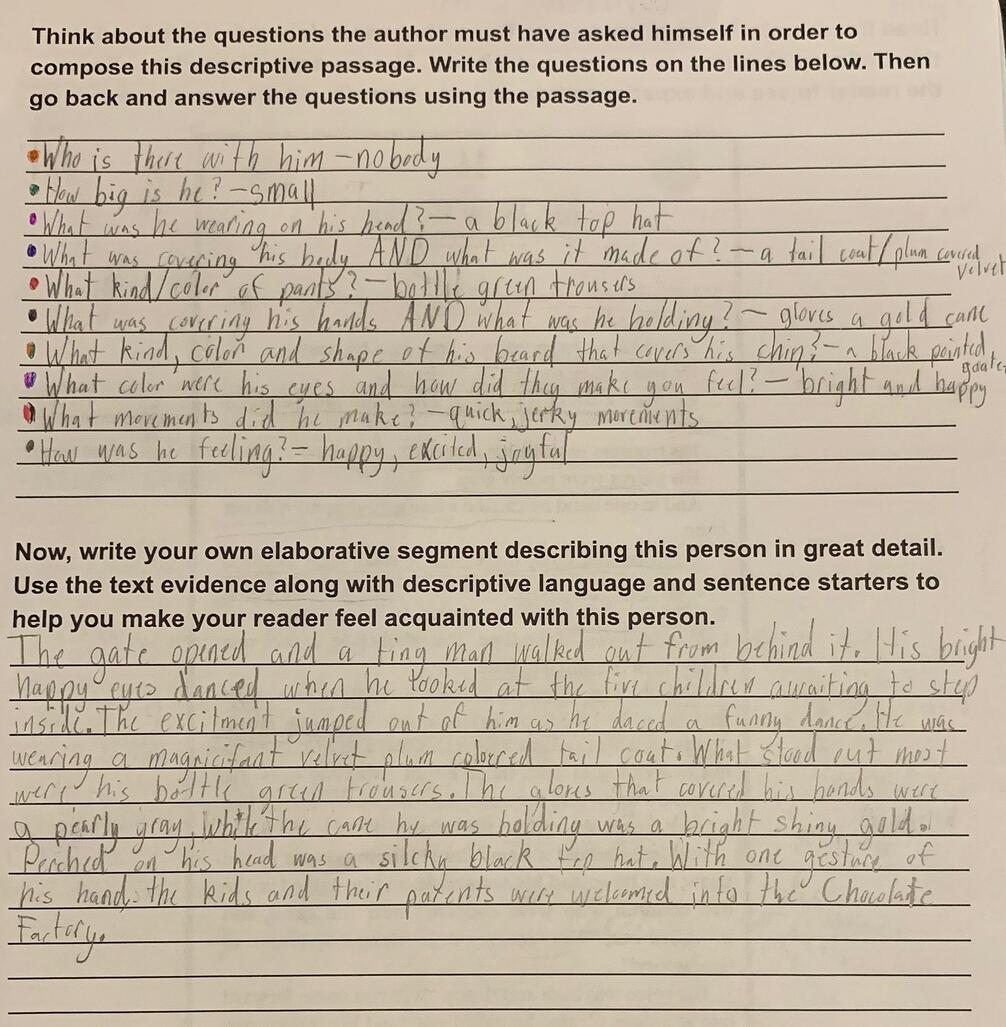 Think about the questions the author must have asked himself in order to
compose this descriptive passage. Write the questions on the lines below. Then
go back and answer the questions using the passage.
• Who is there with him - nobody
• How big is he? - small
• What was he wearing on his head? - a black top hat
• What was covering his body AND what was it made of? - a tail coat/plum covered
velvet
• What kind/color of pants? - bottle green trousers
• What was covering his hands AND what was he holding? - gloves a gold cane
• What kind, color and shape of his beard that covers his chin? - a black pointed
goatee
• What color were his eyes and how did they make you feel? - bright and happy
• What movements did he make? - quick, jerky movements
• How was he feeling? - happy, excited, joyful
Now, write your own elaborative segment describing this person in great detail.
Use the text evidence along with descriptive language and sentence starters to
help you make your reader feel acquainted with this person.
The gate opened and a ting man walked out from behind it. His bright
happy eyes danced when he looked at the five children awaiting to step
inside. The excitment jumped out of him as he daced a funny dance. He was
wearing a magnicifant velvet plum coloured tail coat. What stood out most
were his bottle green trousers. The gloves that covered his hands were
a pearly gray, while the cane hy was holding was a bright shiny gold.
Perched on his head was a silcky black top hat. With one gesture of
his hand, the kids and their parents were welcomed into the Chocolate
Factory.